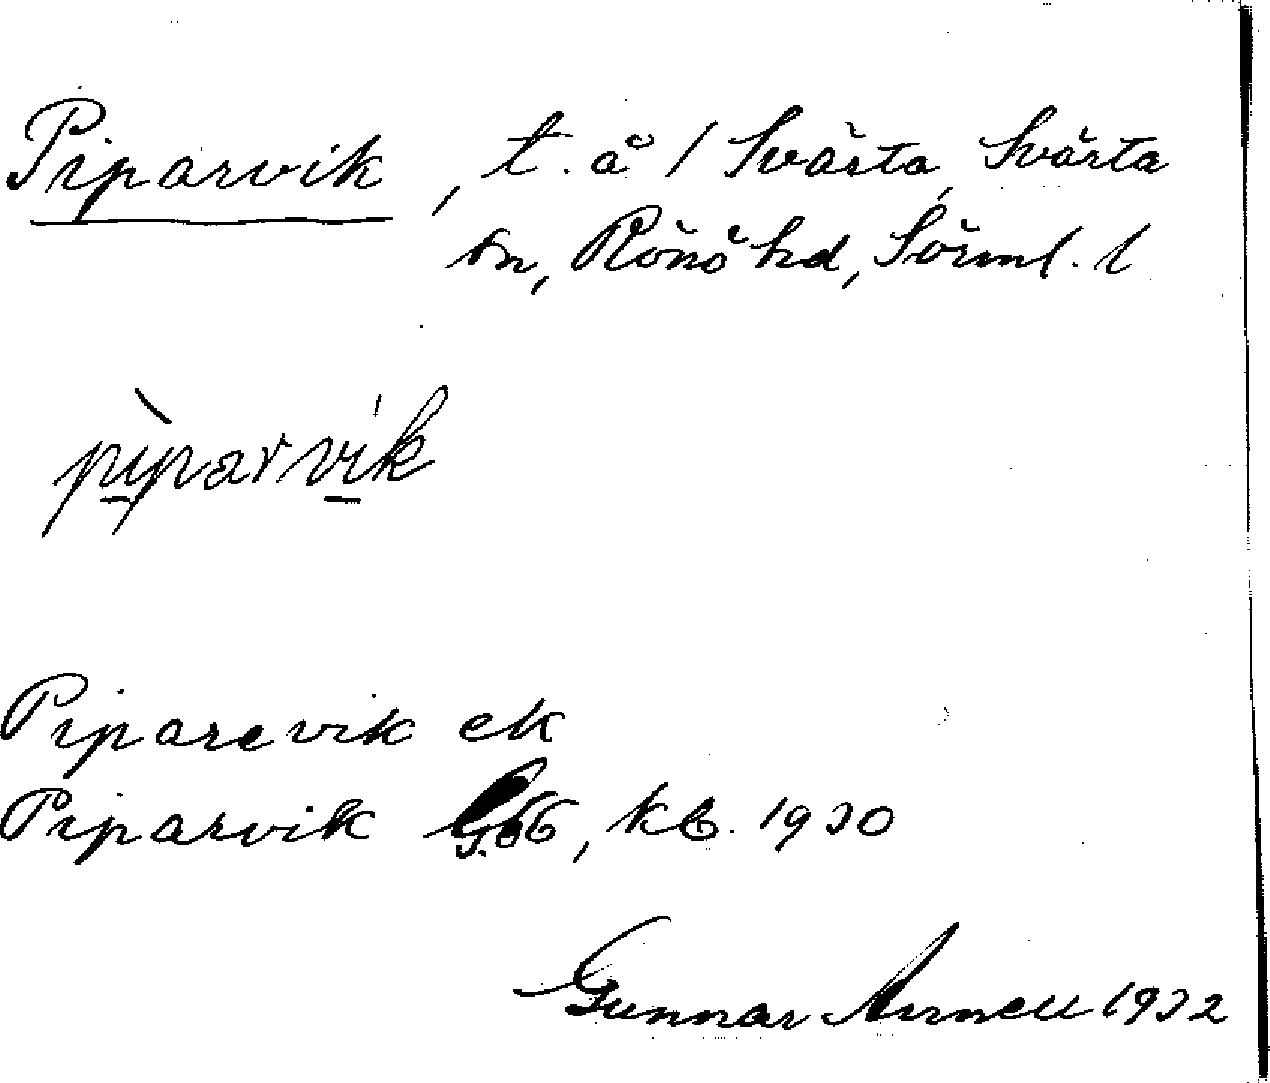 Piparvik, t. å / Svärta, Svärta
sn, Rönö hd, Sörml. l
pìparvík
Piparevik ek
Piparvik Gsb, kb. 1930
Gunnar Arnell 1932